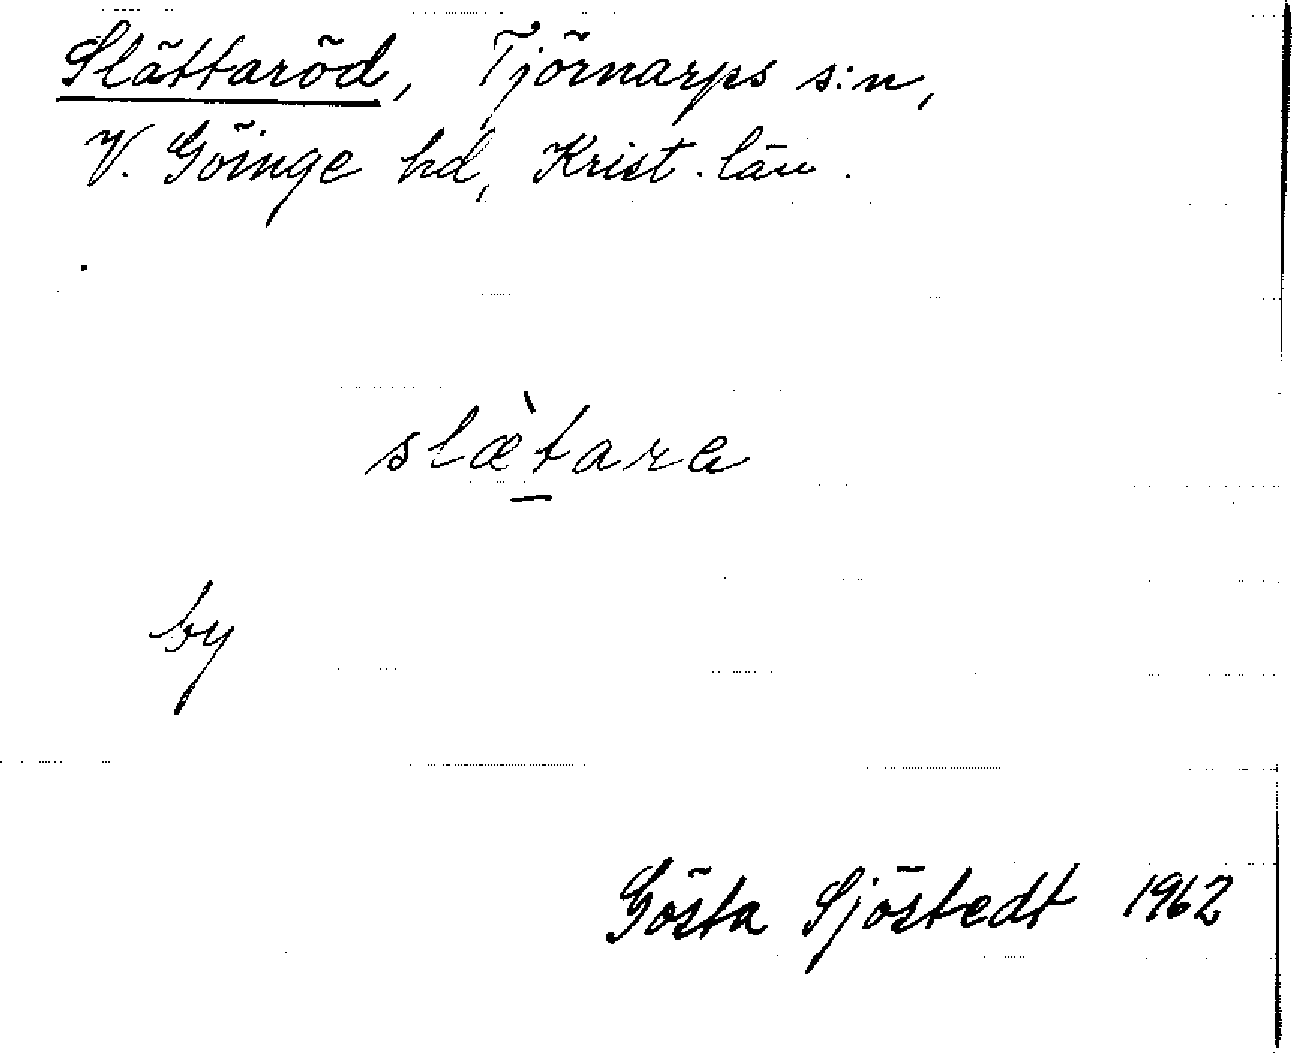 Slättaröd, Tjörnarps s:n,
V. Göinge hd, Krist. län.
slæ̀tara
by
Gösta Sjöstedt 1962